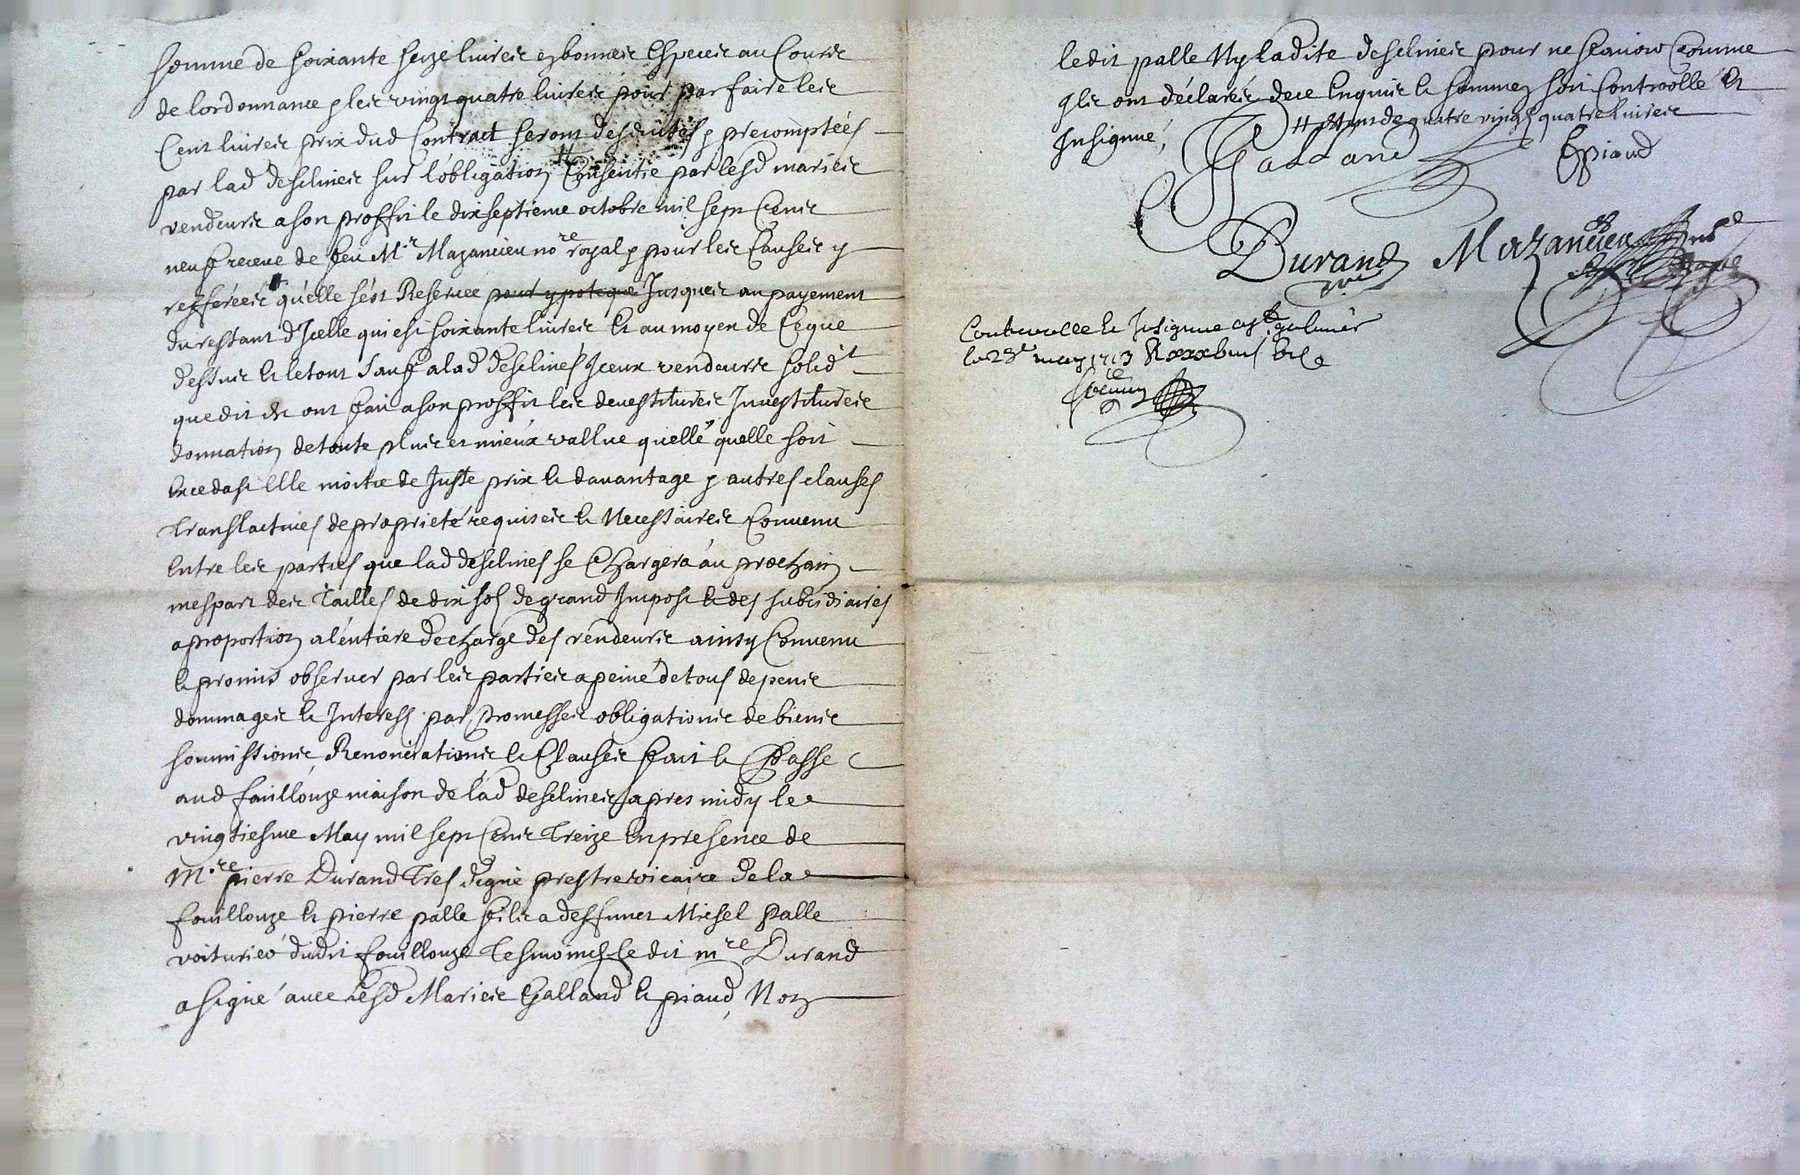 somme de soixante seize livres en bonnes Especes au Cours
de lordonnance & les vingt quatre livres pour parfaire les
Cent livres prix dud Contract seront desduites & precomptées
par lad deselines sur lobligation # Consentie par lesd maries
vendeurs a son proffit le dixseptieme octobre mil sept Cens
neuf receue de feu Mr Mazancieu nore royal & pour les Causes y
refferées quelle sest Reservee pour ypoteque Jusques au payement
du restant dJcelle qui est soixante livres & au moyen de Ceque
dessus & le tout sauf a lad deselines Jceux vendeurs solidt
que dit est ont fait a son proffit les devestitures Jnvestitures
donnation de toute plus et mieux vallue quelle quelle soit
Excedast Elle moitie de Juste prix & davantage & autres clauses
translatives de proprieté requises & Necessaires Convenu
Entre les parties que lad deselines se Chargera au prochain
mespart des Tailles de dix sols de grand Impost & des subsidiaires
a proportion a lentiere decharge des vendeurs ainsy Convenu
& promis observer par les parties a peine de tous depens
dommages & Interess par promesses obligations de biens
soumissions Renonciations & Clauses fait & Passe
aud fouillouze maison de lad deselines apres midy le
vingtiesme May mil sept Cens Treize En presence de
Mre pierre Durand Tres digne prestre vicaire de la
fouillouze & pierre palle fils a deffunct Michel palle
voiturier dudit fouillouze Tesmoins le dit mre Durand
a signé avec lesd Maries Galland & piaud, Non
ledit palle Ny ladite deselines pour ne scavoir Comme
Ils ont déclarés de ce Enquis & sommes soit Controollé Et
Insignué,
# Estant de quatre vingt quatre livres
Galland Epiaud
Durand
vic
Mazancieu
Controolle & Insignue a St galmier
le 23e may 1713